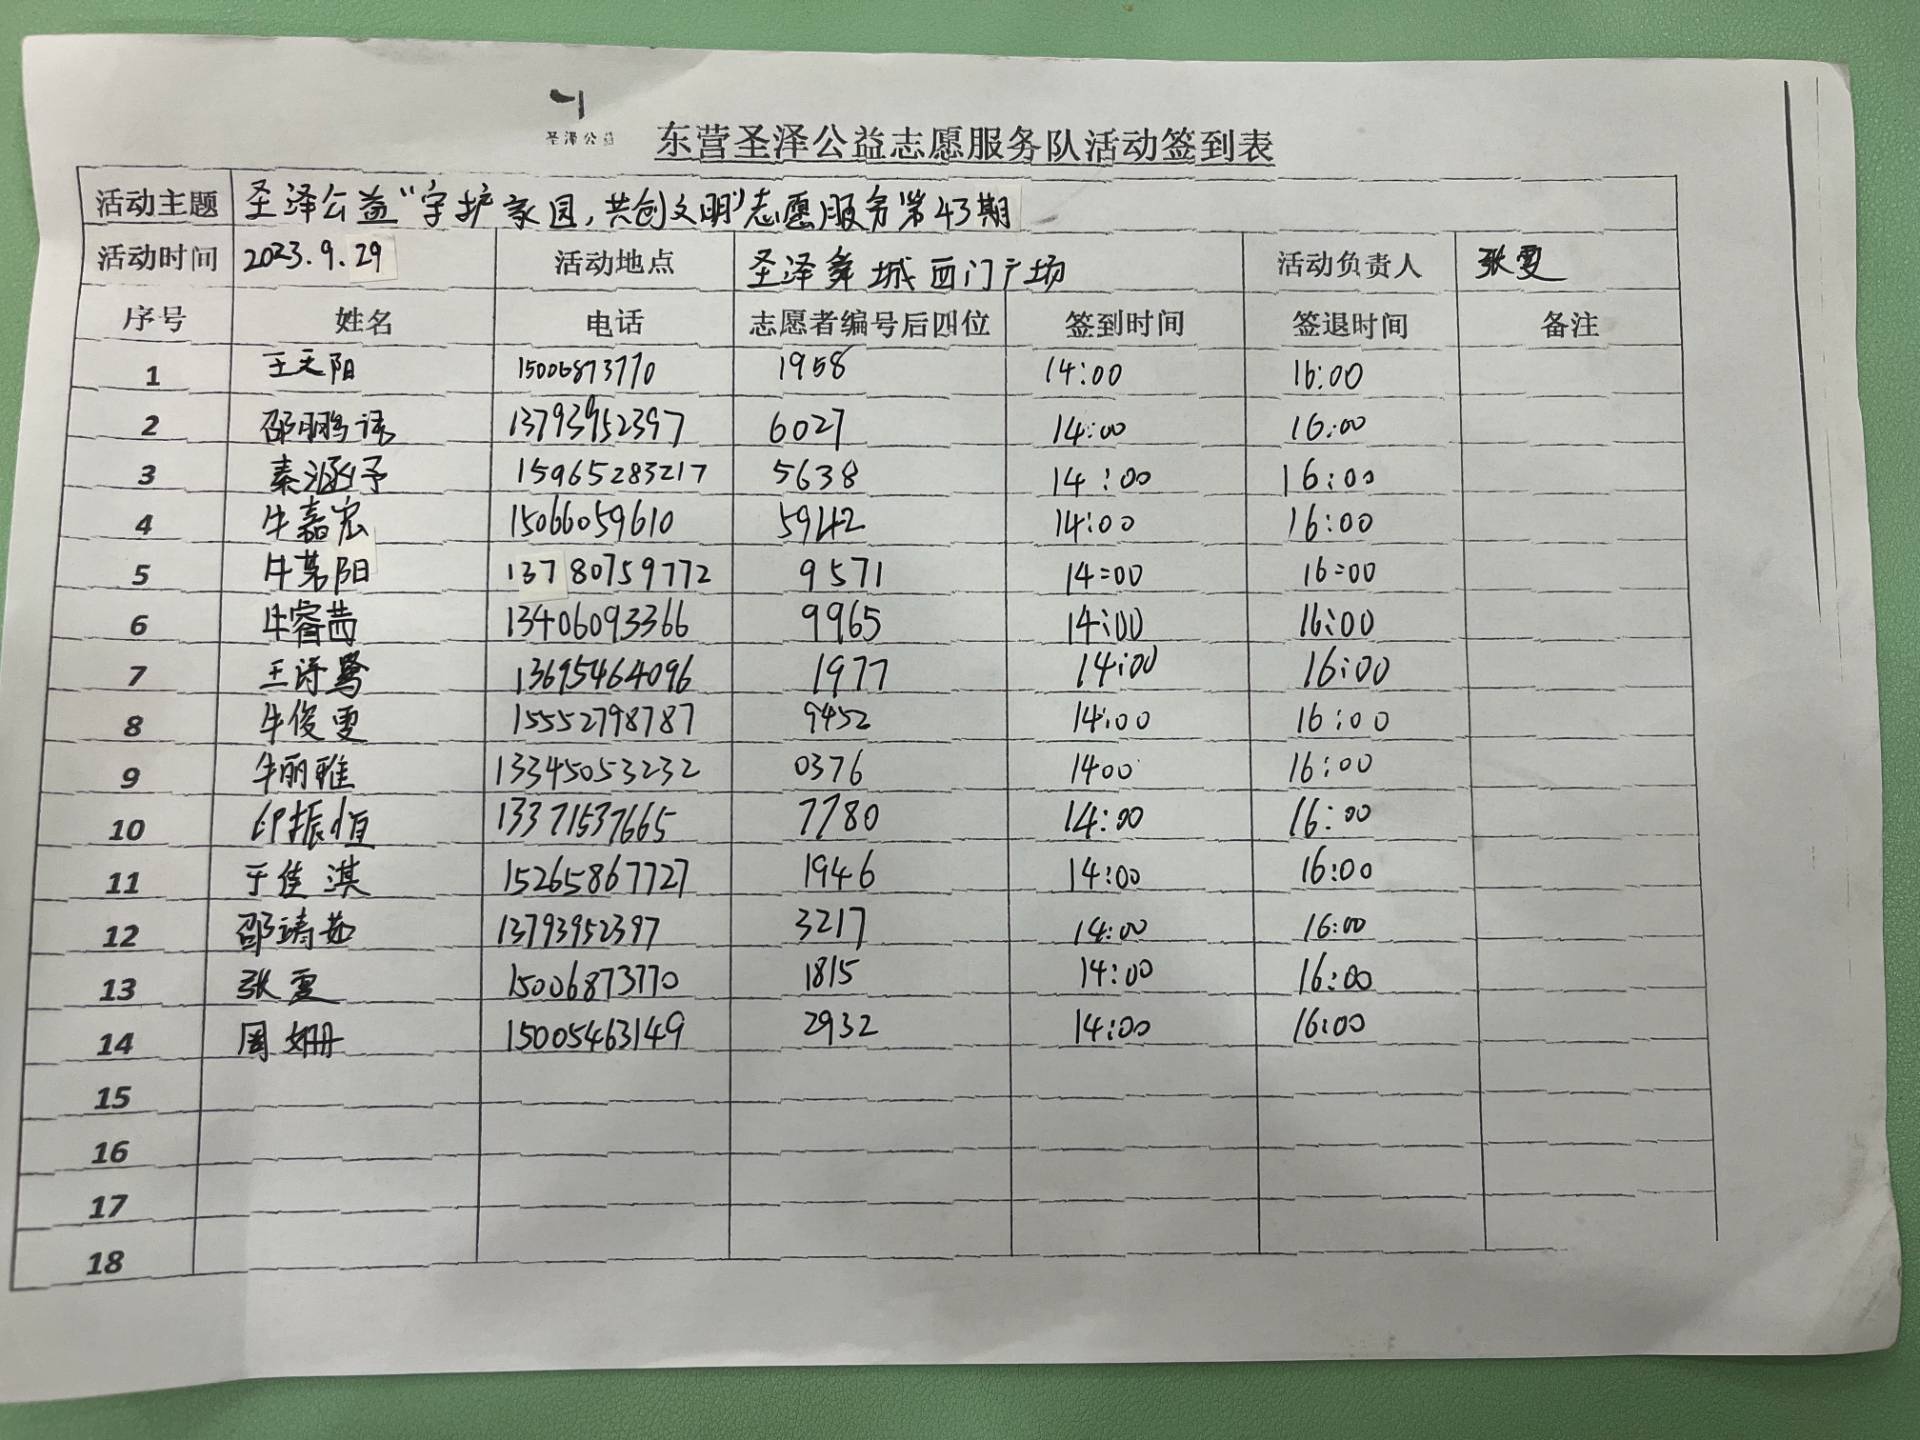 圣泽公益
东营圣泽公益志愿服务队活动签到表
活动主题 圣泽公益"守护家园,共创文明"志愿服务第43期
活动时间 2023.9.29 活动地点 圣泽舞城西门广场 活动负责人 张雯
序号 姓名 电话 志愿者编号后四位 签到时间 签退时间 备注
1 王天阳 15006873770 1958 14:00 16:00
2 邵鹏诱 13793952397 6027 14:00 16:00
3 秦涵予 15965283217 5638 14:00 16:00
4 牛嘉宏 15066059610 5942 14:00 16:00
5 牛阳 13780759772 9571 14:00 16:00
6 牛睿茜 13406093366 9965 14:00 16:00
7 王诗鹭 13695464096 1977 14:00 16:00
8 牛俊雯 15552798787 9452 14:00 16:00
9 牛丽雅 13345053232 0376 1400 16:00
10 印振恒 13371537665 7780 14:00 16:00
11 于佳淇 15265867727 1946 14:00 16:00
12 邵靖茹 13793952397 3217 14:00 16:00
13 张雯 15006873770 1815 14:00 16:00
14 周姗 15005463149 2932 14:00 16:00
15
16
17
18